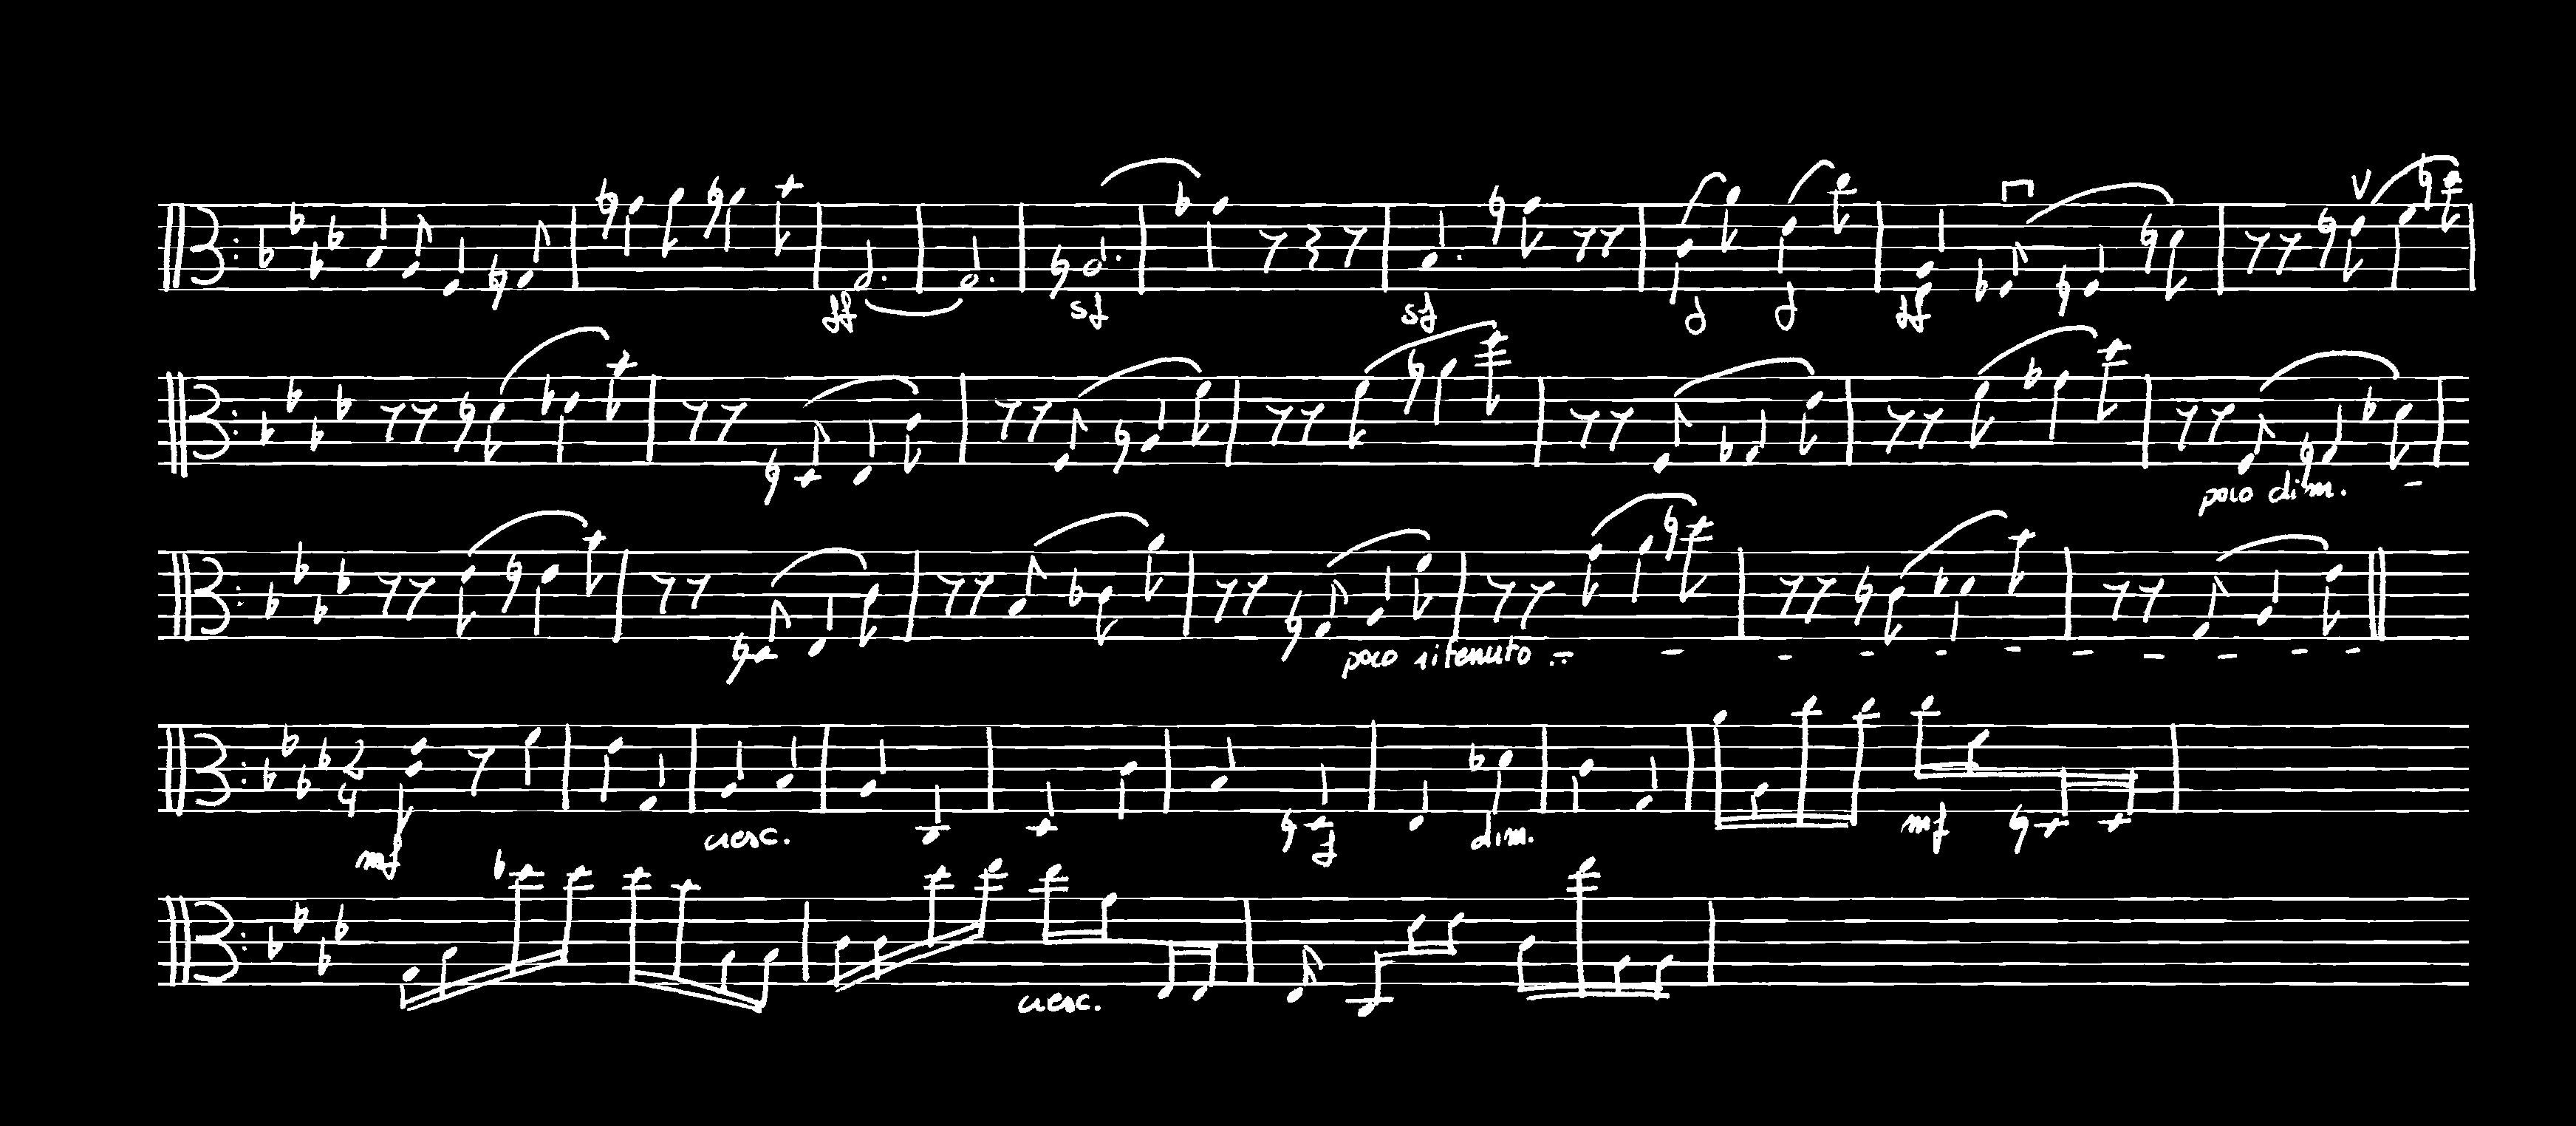 ff sf sf f f ff
poco dim. -
poco ritenuto .. - - - - - - - - - -
2 4 mf cresc. f dim. mf
cresc.